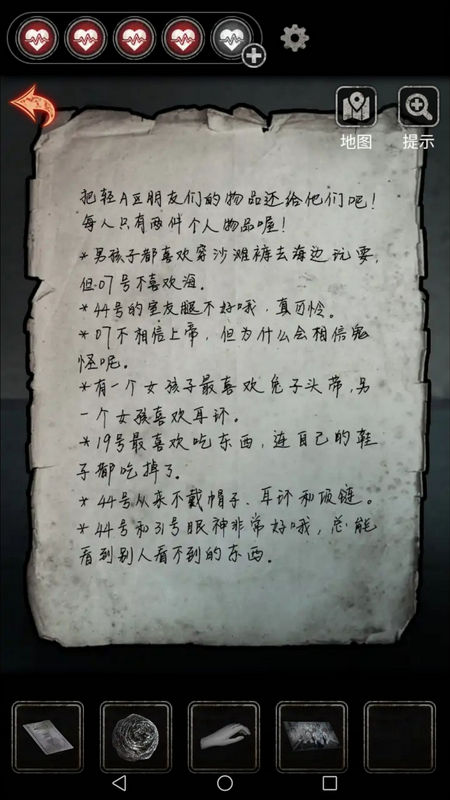 地图
提示
把轻A豆朋友们的物品还给他们吧！
每人只有两件个人物品喔！
*男孩子都喜欢穿沙滩裤去海边玩耍，
但07号不喜欢海。
*44号的室友腿不好哦，真可怜。
*07不相信上帝，但为什么会相信鬼
怪呢。
*有一个女孩子最喜欢兔子头带，另
一个女孩喜欢耳环。
*19号最喜欢吃东西，连自己的鞋
子都吃掉了。
*44号从来不戴帽子、耳环和项链。
*44号和31号眼神非常好哦，总能
看到别人看不到的东西。